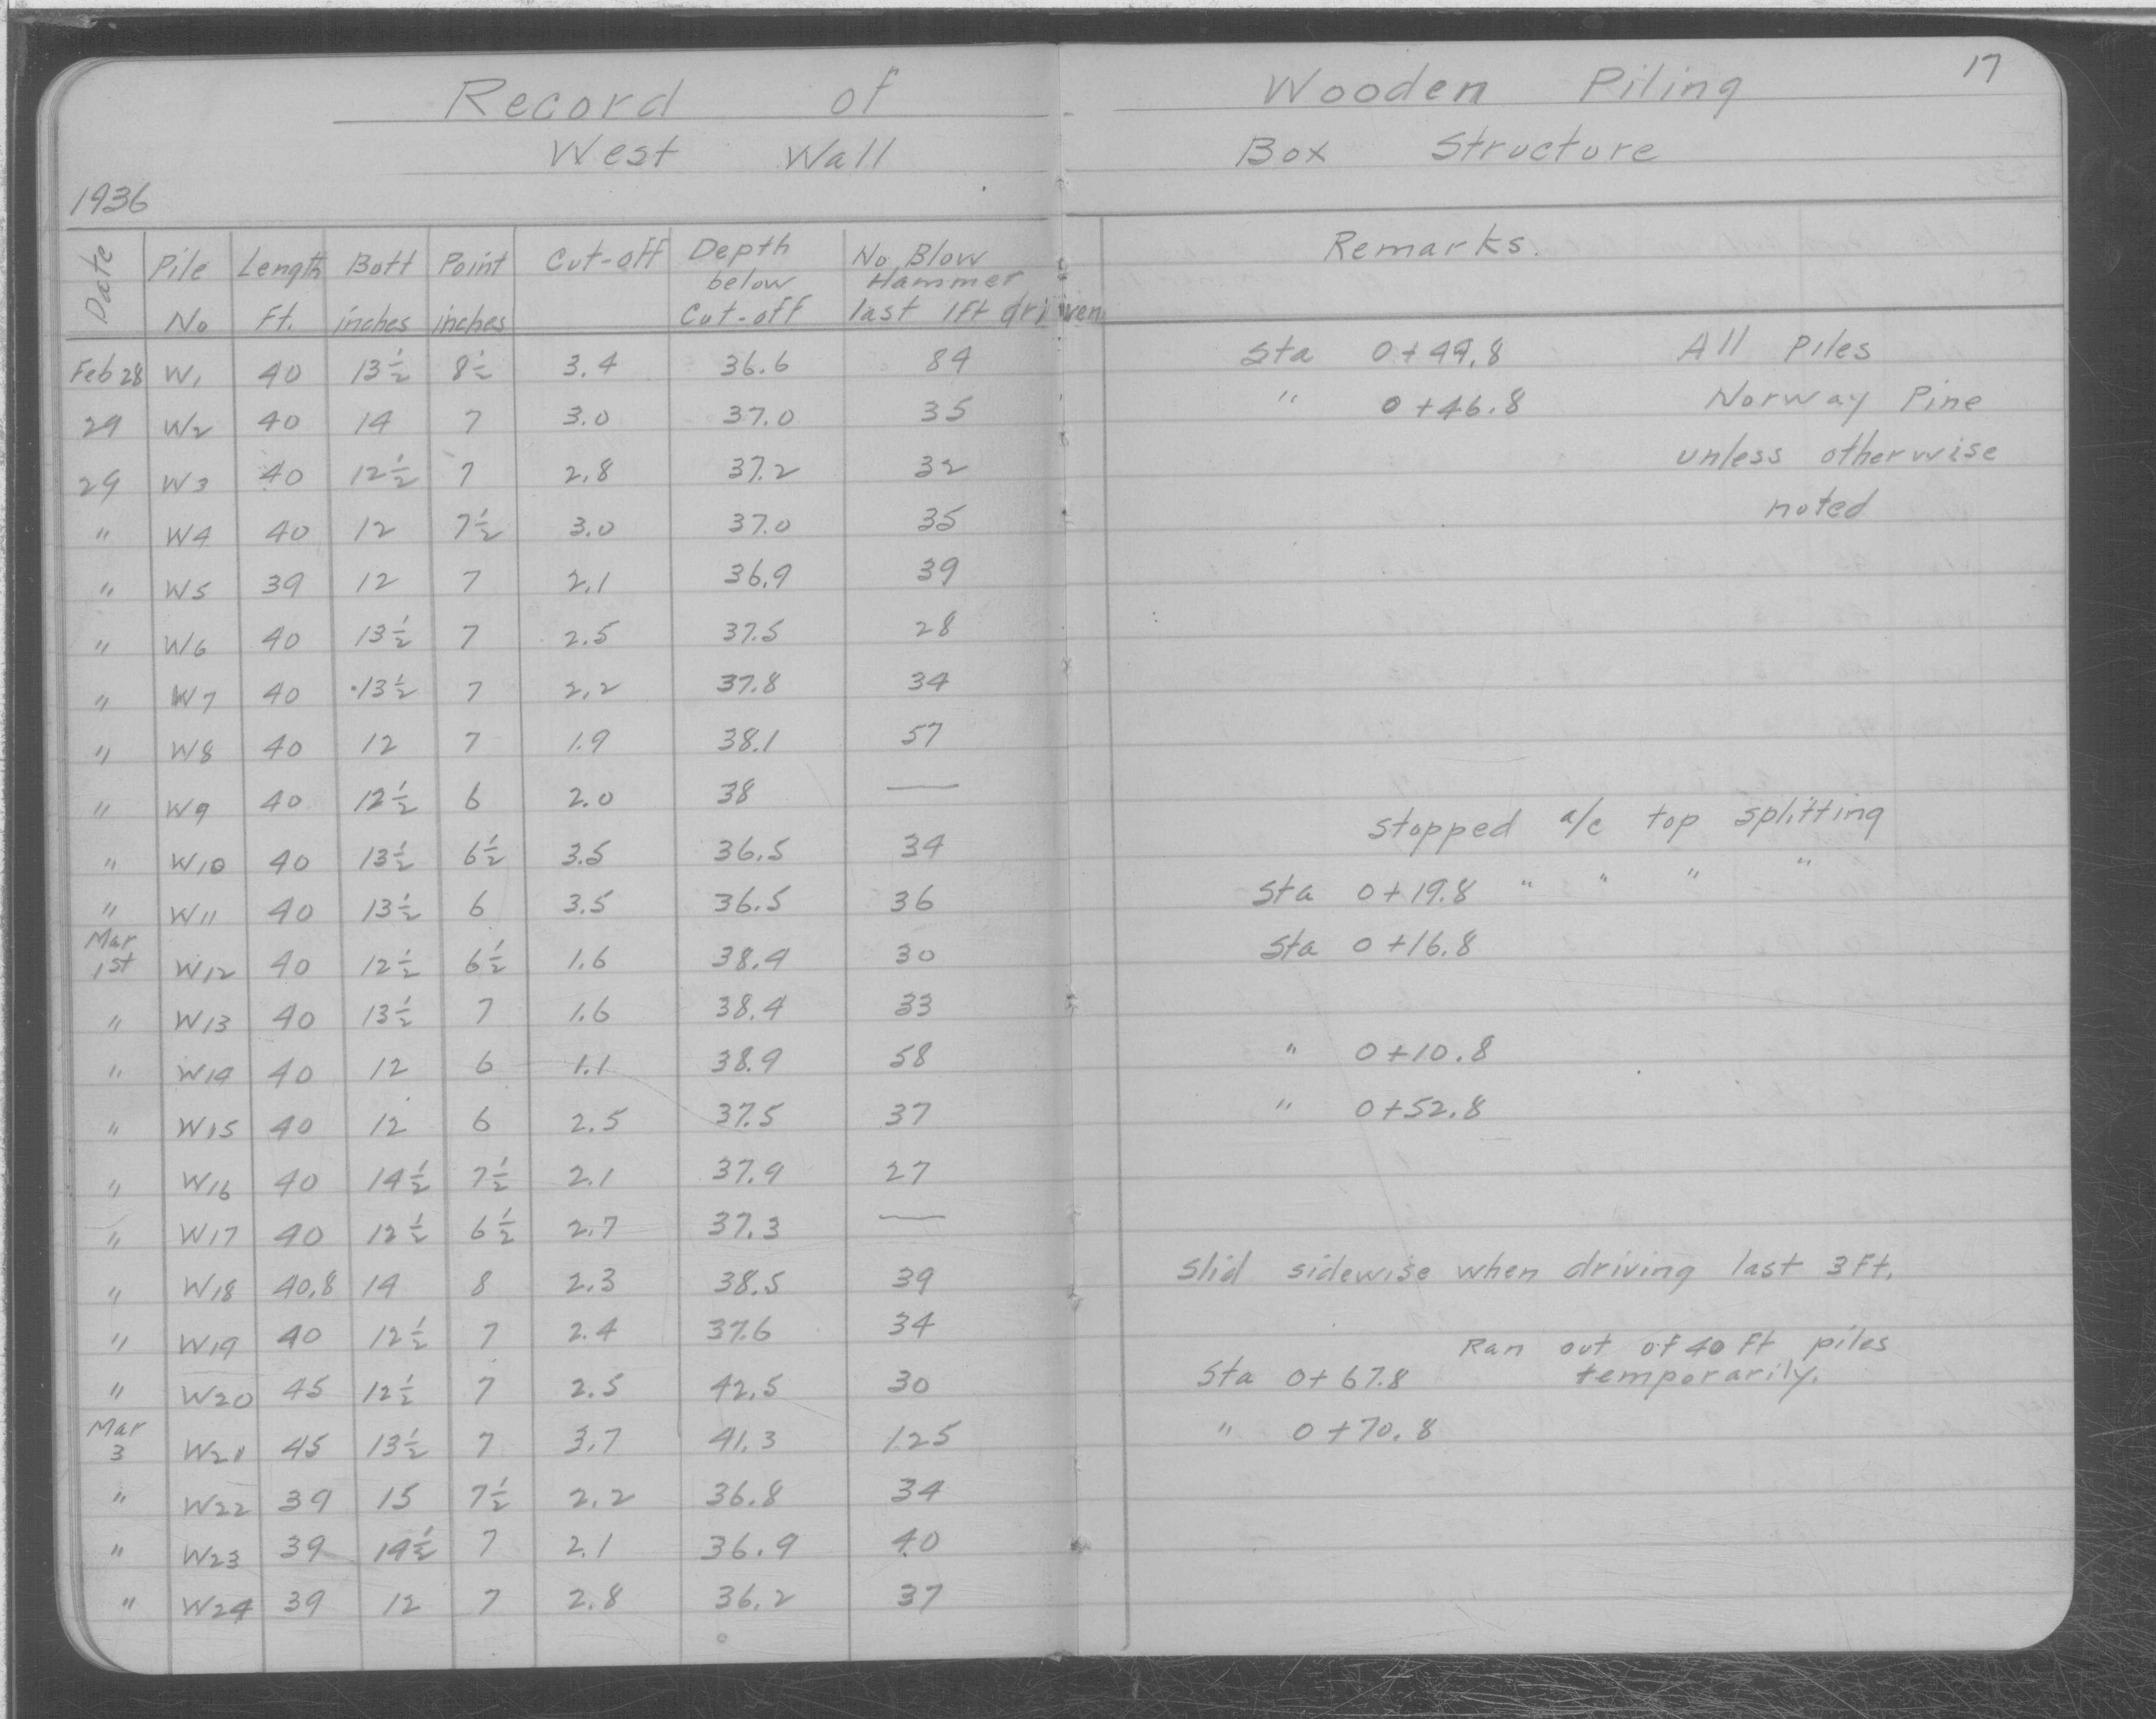 17
Record of Wooden Piling
West Wall Box Structure
1936
Date Pile No Length Ft. Bott inches Point inches Cut-off Depth below Cut-off No Blow Hammer last 1ft driven Remarks.
Feb 28 W1 40 13½ 8½ 3.4 36.6 84 Sta 0+49.8 All Piles
29 W2 40 14 7 3.0 37.0 35 " 0+46.8 Norway Pine
29 W3 40 12½ 7 2.8 37.2 32 unless otherwise
" W4 40 12 7½ 3.0 37.0 35 noted
" W5 39 12 7 2.1 36.9 39
" W6 40 13½ 7 2.5 37.5 28
" W7 40 13½ 7 2.2 37.8 34
" W8 40 12 7 1.9 38.1 57
" W9 40 12½ 6 2.0 38 —
" W10 40 13½ 6½ 3.5 36.5 34 Stopped a/c top splitting
" W11 40 13½ 6 3.5 36.5 36 Sta 0+19.8 " " " "
Mar 1st W12 40 12½ 6½ 1.6 38.4 30 Sta 0+16.8
" W13 40 13½ 7 1.6 38.4 33
" W14 40 12 6 1.1 38.9 58 " 0+10.8
" W15 40 12 6 2.5 37.5 37 " 0+52.8
" W16 40 14½ 7½ 2.1 37.9 27
" W17 40 12½ 6½ 2.7 37.3 —
" W18 40.8 14 8 2.3 38.5 39 Slid sidewise when driving last 3ft.
" W19 40 12½ 7 2.4 37.6 34 Ran out of 40 ft piles
" W20 45 12½ 7 2.5 42.5 30 Sta 0+67.8 temporarily.
Mar 3 W21 45 13½ 7 3.7 41.3 125 " 0+70.8
" W22 39 15 7½ 2.2 36.8 34
" W23 39 14½ 7 2.1 36.9 40
" W24 39 12 7 2.8 36.2 37